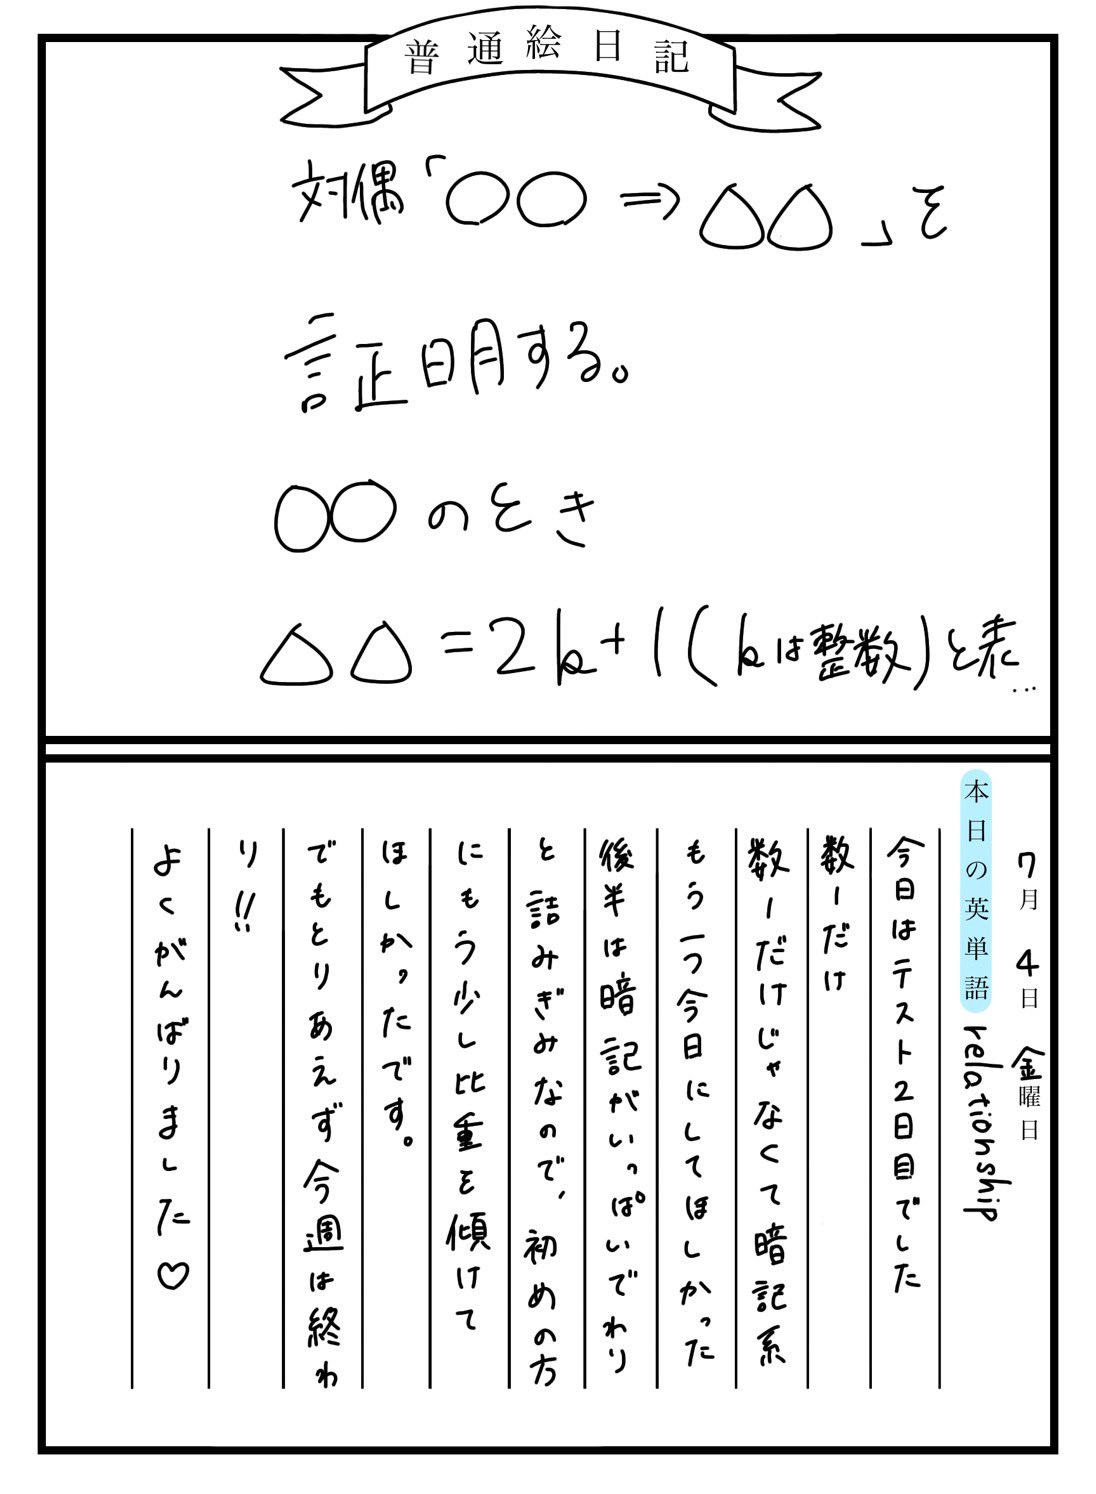 普通絵日記
対偶「〇〇⇒△△」を
証明する。
〇〇のとき
△△=2k+1(kは整数)と表…
7月4日金曜日
本日の英単語 relationship
今日はテスト2日目でした
数一だけ
数一だけじゃなくて暗記系
もう一つ今日にしてほしかった
後半は暗記がいっぱいでわり
と詰みぎみなので、初めの方
にもう少し比重を傾けて
ほしかったです。
でもとりあえず今週は終わ
り!!
よくがんばりました♡